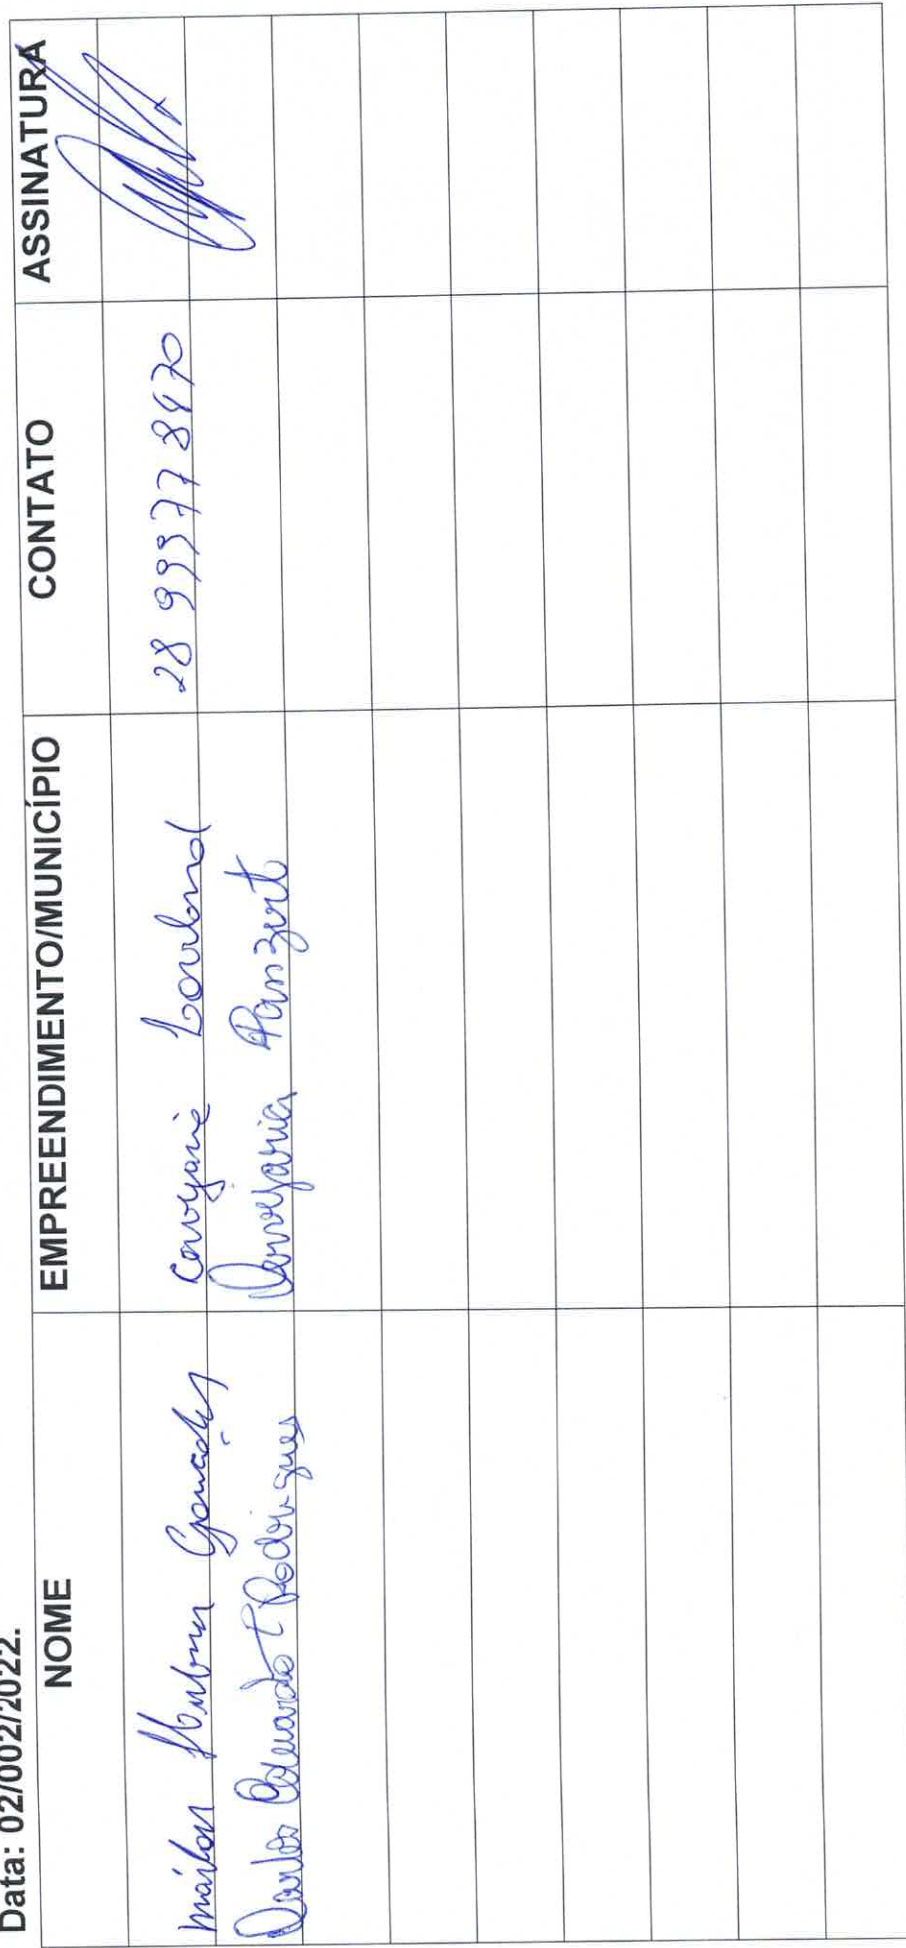 Data: 02/002/2022.
NOME EMPREENDIMENTO/MUNICÍPIO CONTATO ASSINATURA
Márlon Gonçalves Cervejaria 28 99977 8470
Carlos Eduardo Rodrigues Cervejaria Ranzert